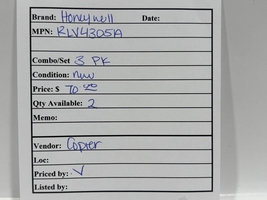 Brand: Honeywell Date:
MPN: RLV4305A
Combo/Set 3 PK
Condition: New
Price: $ 70 00
Qty Available: 2
Memo:
Vendor: Copier
Loc:
Priced by: V
Listed by: